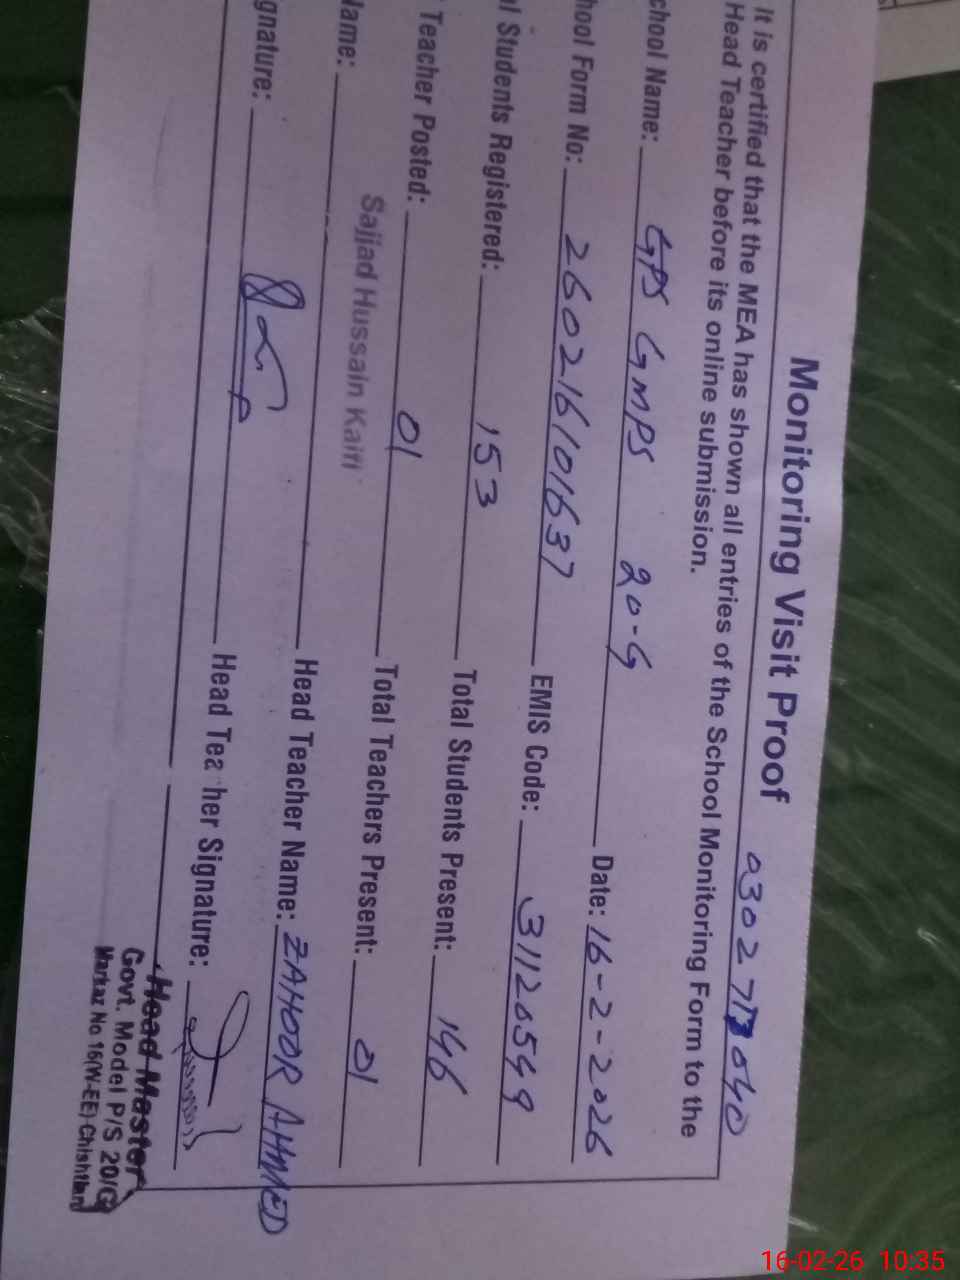 Monitoring Visit Proof
It is certified that the MEA has shown all entries of the School Monitoring Form to the
Head Teacher before its online submission.
chool Name: GPS GMPS 20-G Date: 16-2-2026
hool Form No: 260216101637 EMIS Code: 31120549
al Students Registered: 153 Total Students Present: 146
Teacher Posted: 01 Total Teachers Present: 01
Name: Sajjad Hussain Head Teacher Name: ZAHOOR AHMED
gnature: Head Teacher Signature:
Head Master
Govt. Model P/S 20/G
Markaz No 16(W-EE) Chishtian
16-02-26 10:35